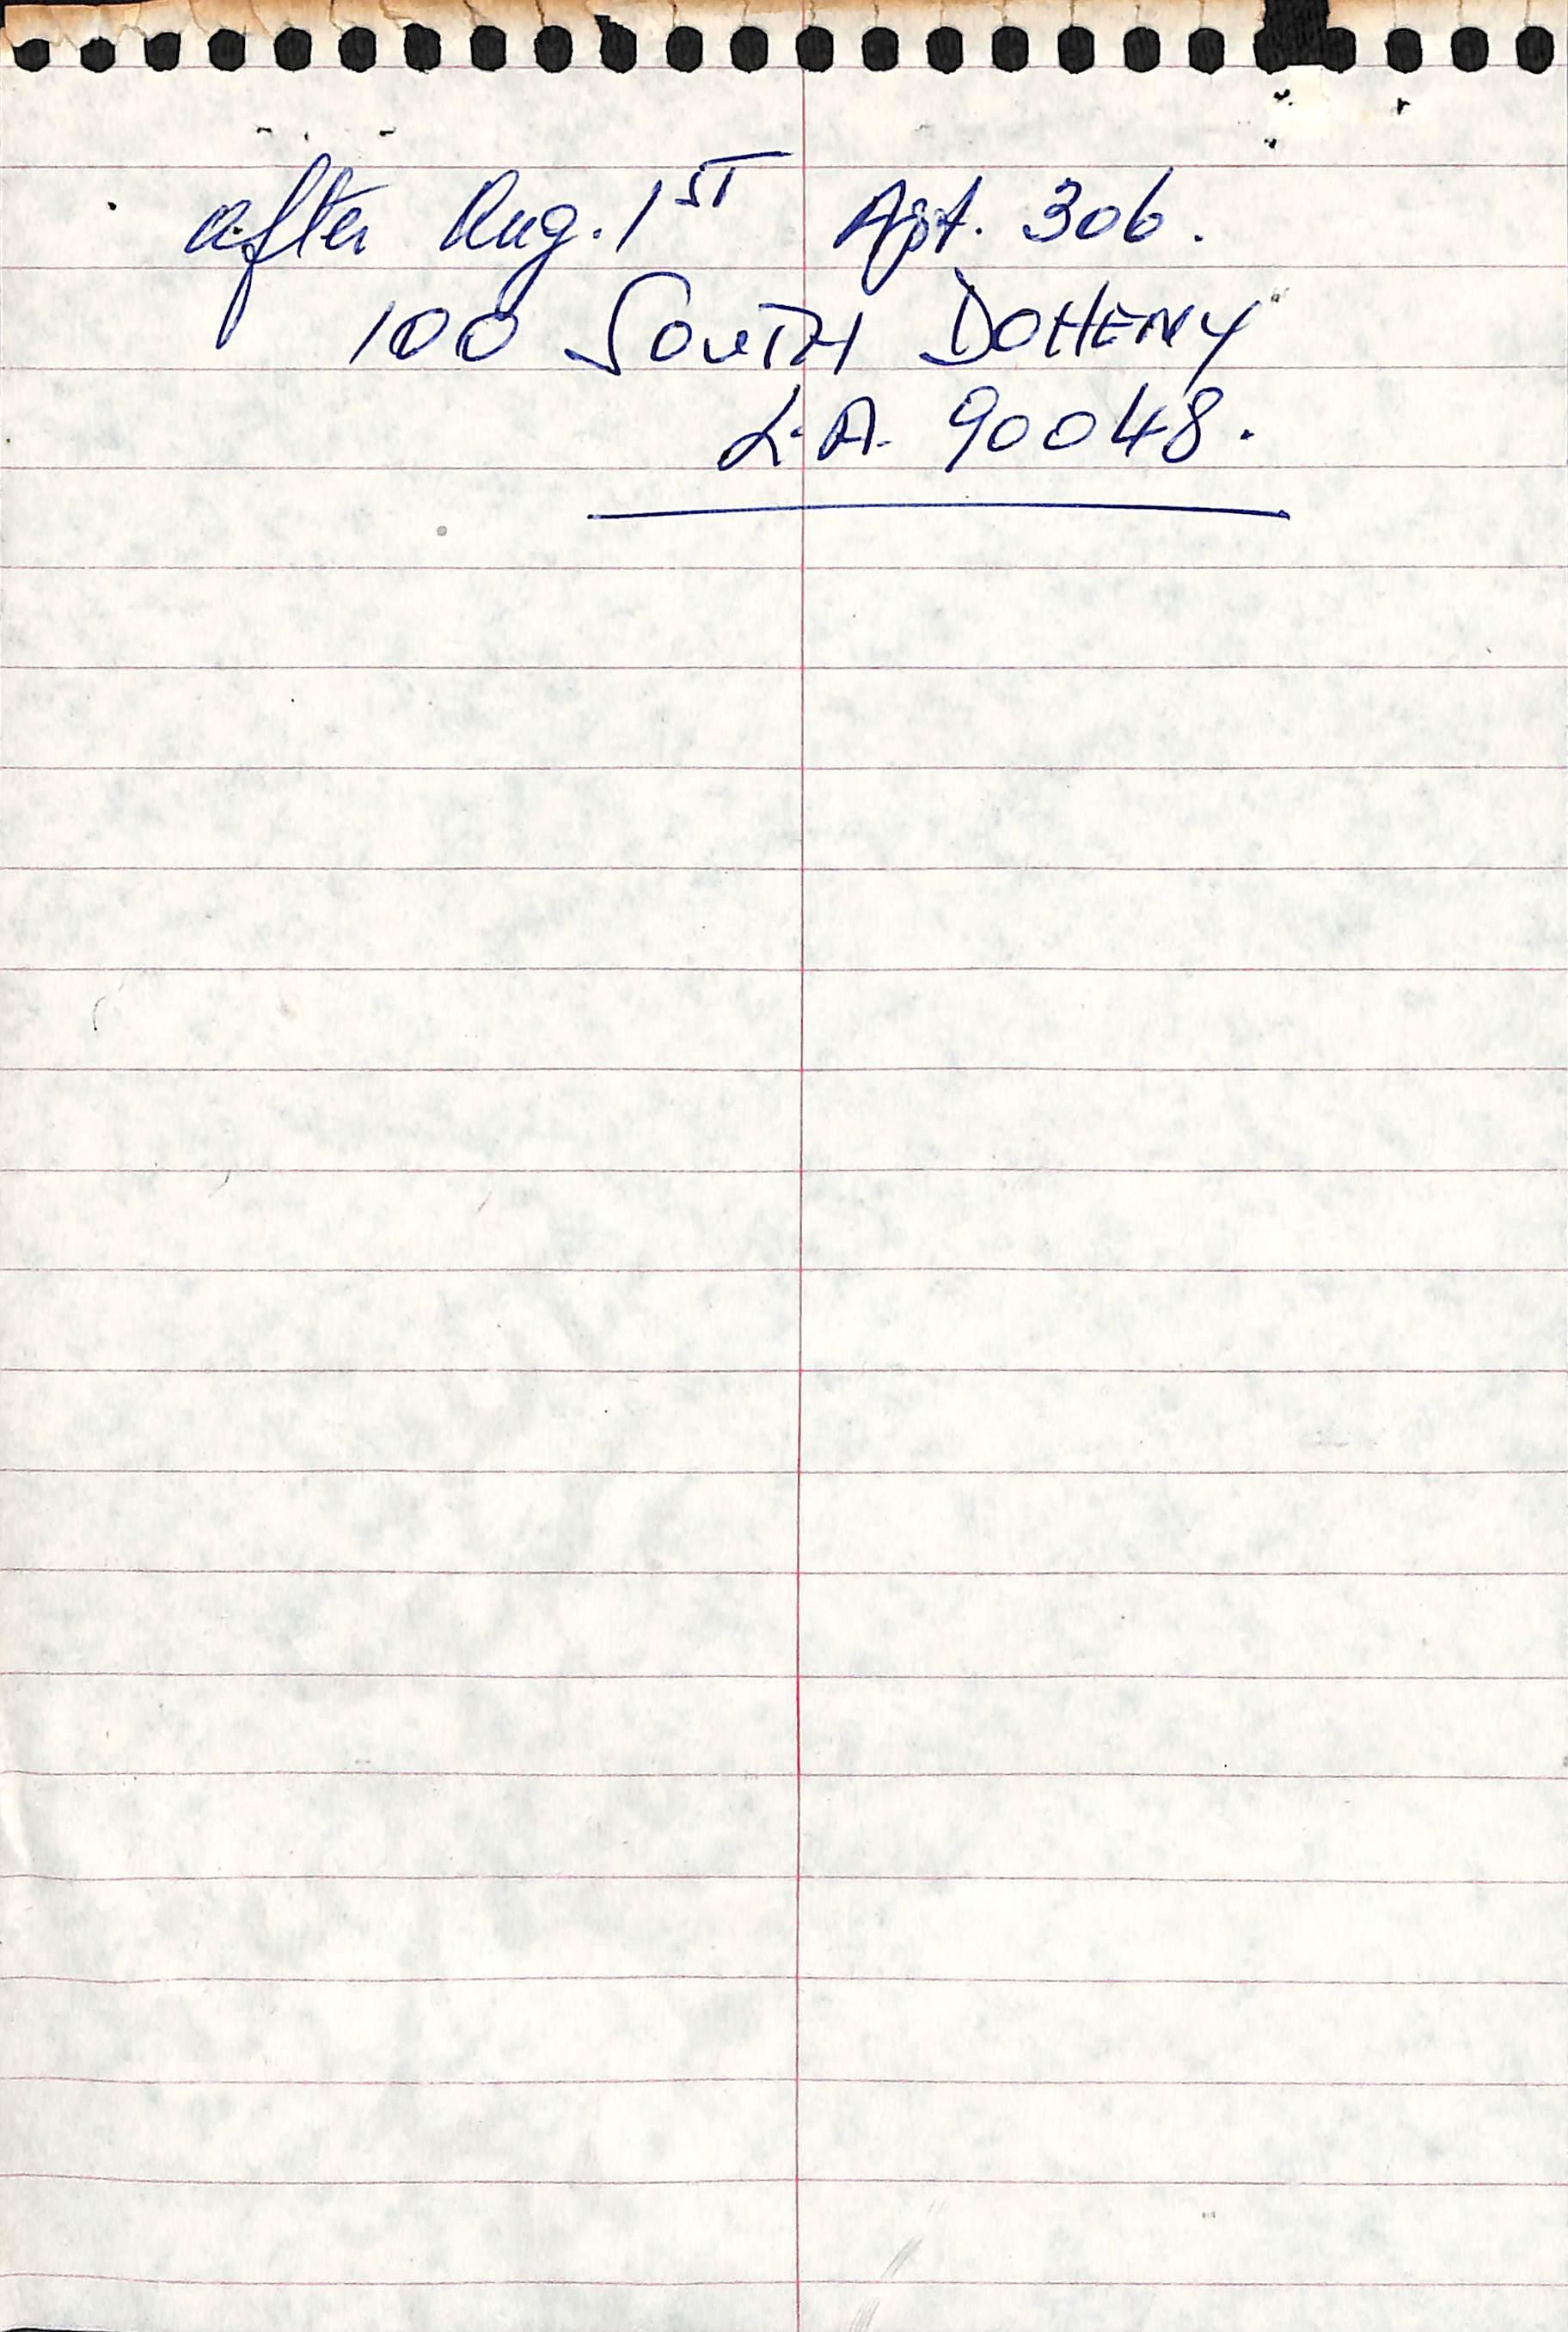 after Aug. 1ST Apt. 306.
100 SOUTH DOHENY
L.A. 90048.